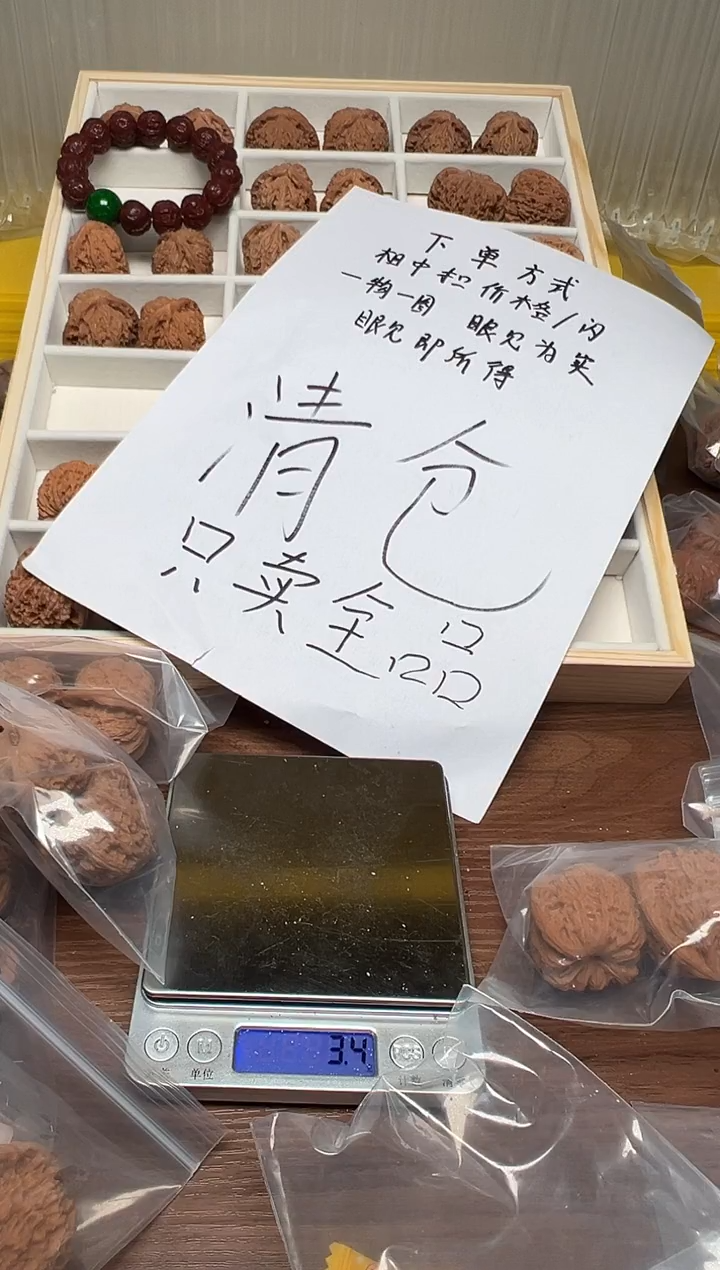 下单方式
相中扣价格/闪
一物一图 眼见为实
眼见即所得
清仓
只卖全品
3.4
单位
PCS
计数